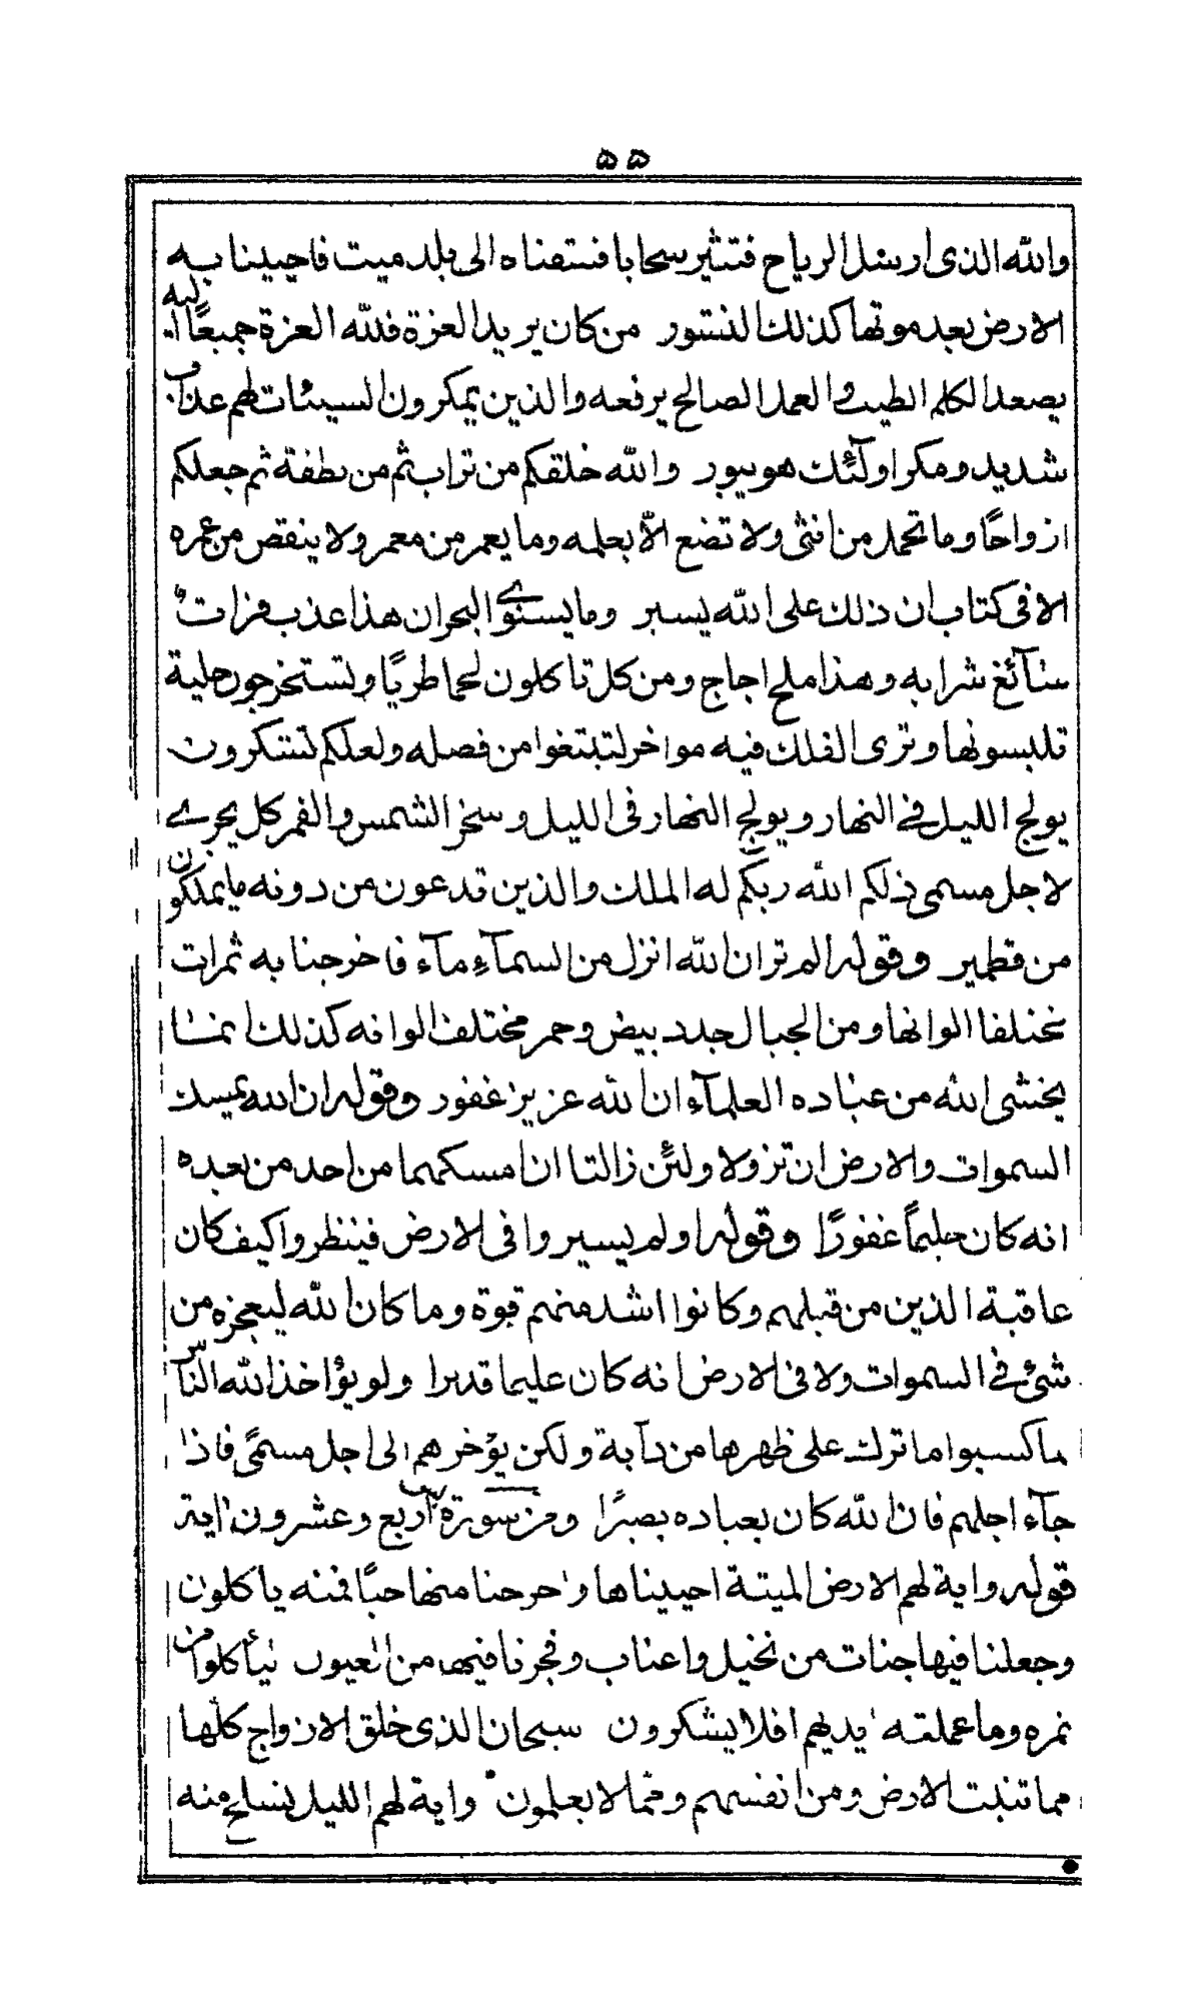 ٥٥
والله الذى ارسل الرياح فتثير سحابا فسقناه الى بلد ميت فاحيينا به
الارض بعد موتها كذلك النشور من كان يريد العزة فلله العزة جميعًا اليه
يصعد الكلم الطيب والعمل الصالح يرفعه والذين يمكرون السيئات لهم عذاب
شديد ومكر اولٓئك هو يبور والله خلقكم من تراب ثم من نطفة ثم جعلكم
ازواجًا وما تحمل من انثى ولا تضع الّا بعلمه وما يعمر من معمر ولا ينقص من عمره
الا فى كتاب ان ذلك على الله يسير وما يستوے البحران هذا عذب فرات
سٓائغ شرابه وهذا ملح اجاج ومن كل تاكلون لحما طريًا وتستخرجون حلية
تلبسونها وترى الفلك فيه مواخر لتبتغوا من فضله ولعلكم تشكرون
يولج الليل فے النهار ويولج النهار فى الليل وسخر الشمس والقمر كل يجرے
لاجل مسمى ذلكم الله ربكم له الملك والذين تدعون من دونه ما يملكون
من قطمير وقوله الم تر ان الله انزل من السمآء مآء فاخرجنا به ثمرات
مختلفا الوانها ومن الجبال جدد بيض وحمر مختلف الوانه كذلك انما
يخشى الله من عباده العلمآء ان الله عزيز غفور وقوله ان الله يمسك
السموات والارض ان تزولا ولئن زالتا ان امسكهما من احد من بعده
انه كان حليمًا غفورًا وقوله اولم يسيروا فى الارض فينظروا كيف كان
عاقبة الذين من قبلهم وكانوا اشد منهم قوة وما كان الله ليعجزه من
شئ فے السموات ولا فى الارض انه كان عليما قديرا ولو يؤاخذ الله الناس
ما كسبوا ما ترك على ظهرها من دآبة ولكن يؤخرهم الى اجل مسمًى فاذا
جآء اجلهم فان الله كان بعباده بصيرًا ومن سورة يس اربع وعشرون اية
قوله واية لهم الارض الميتة احييناها واخرجنا منها حبًا فمنه ياكلون
وجعلنا فيها جنات من نخيل واعناب وفجرنا فيها من العيون ليأكلوا من
ثمره وما عملته ايديهم افلا يشكرون سبحان الذى خلق الازواج كلها
مما تنبت الارض ومن انفسهم ومما لا يعلمون واية لهم الليل نسلخ منه